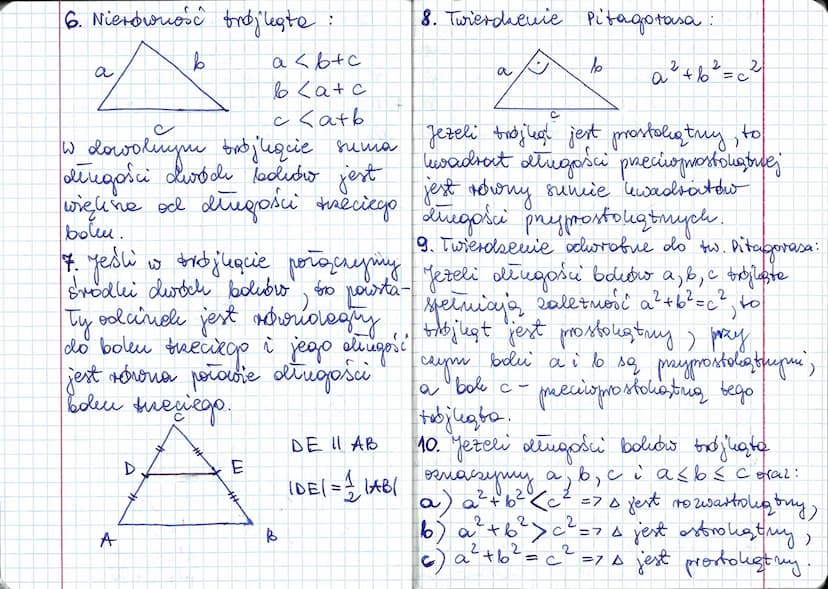 6. Nierówność trójkąta :
a b
c
a < b + c
b < a + c
c < a + b
W dowolnym trójkącie suma
długości dwóch boków jest
większa od długości trzeciego
boku.
7. Jeśli w trójkącie połączymy
środki dwóch boków, to powsta-
ły odcinek jest równoległy
do boku trzeciego i jego długość
jest równa połowie długości
boku trzeciego.
C
D E
A B
DE || AB
|DE| = 1/2 |AB|
8. Twierdzenie Pitagorasa :
a b
c
a² + b² = c²
Jeżeli trójkąt jest prostokątny, to
kwadrat długości przeciwprostokątnej
jest równy sumie kwadratów
długości przyprostokątnych.
9. Twierdzenie odwrotne do tw. Pitagorasa:
Jeżeli długości boków a, b, c trójkąta
spełniają zależność a² + b² = c², to
trójkąt jest prostokątny, przy
czym boki a i b są przyprostokątnymi,
a bok c - przeciwprostokątną tego
trójkąta.
10. Jeżeli długości boków trójkąta
oznaczymy a, b, c i a ≤ b ≤ c oraz:
a) a² + b² < c² => △ jest rozwartokątny,
b) a² + b² > c² => △ jest ostrokątny,
c) a² + b² = c² => △ jest prostokątny.